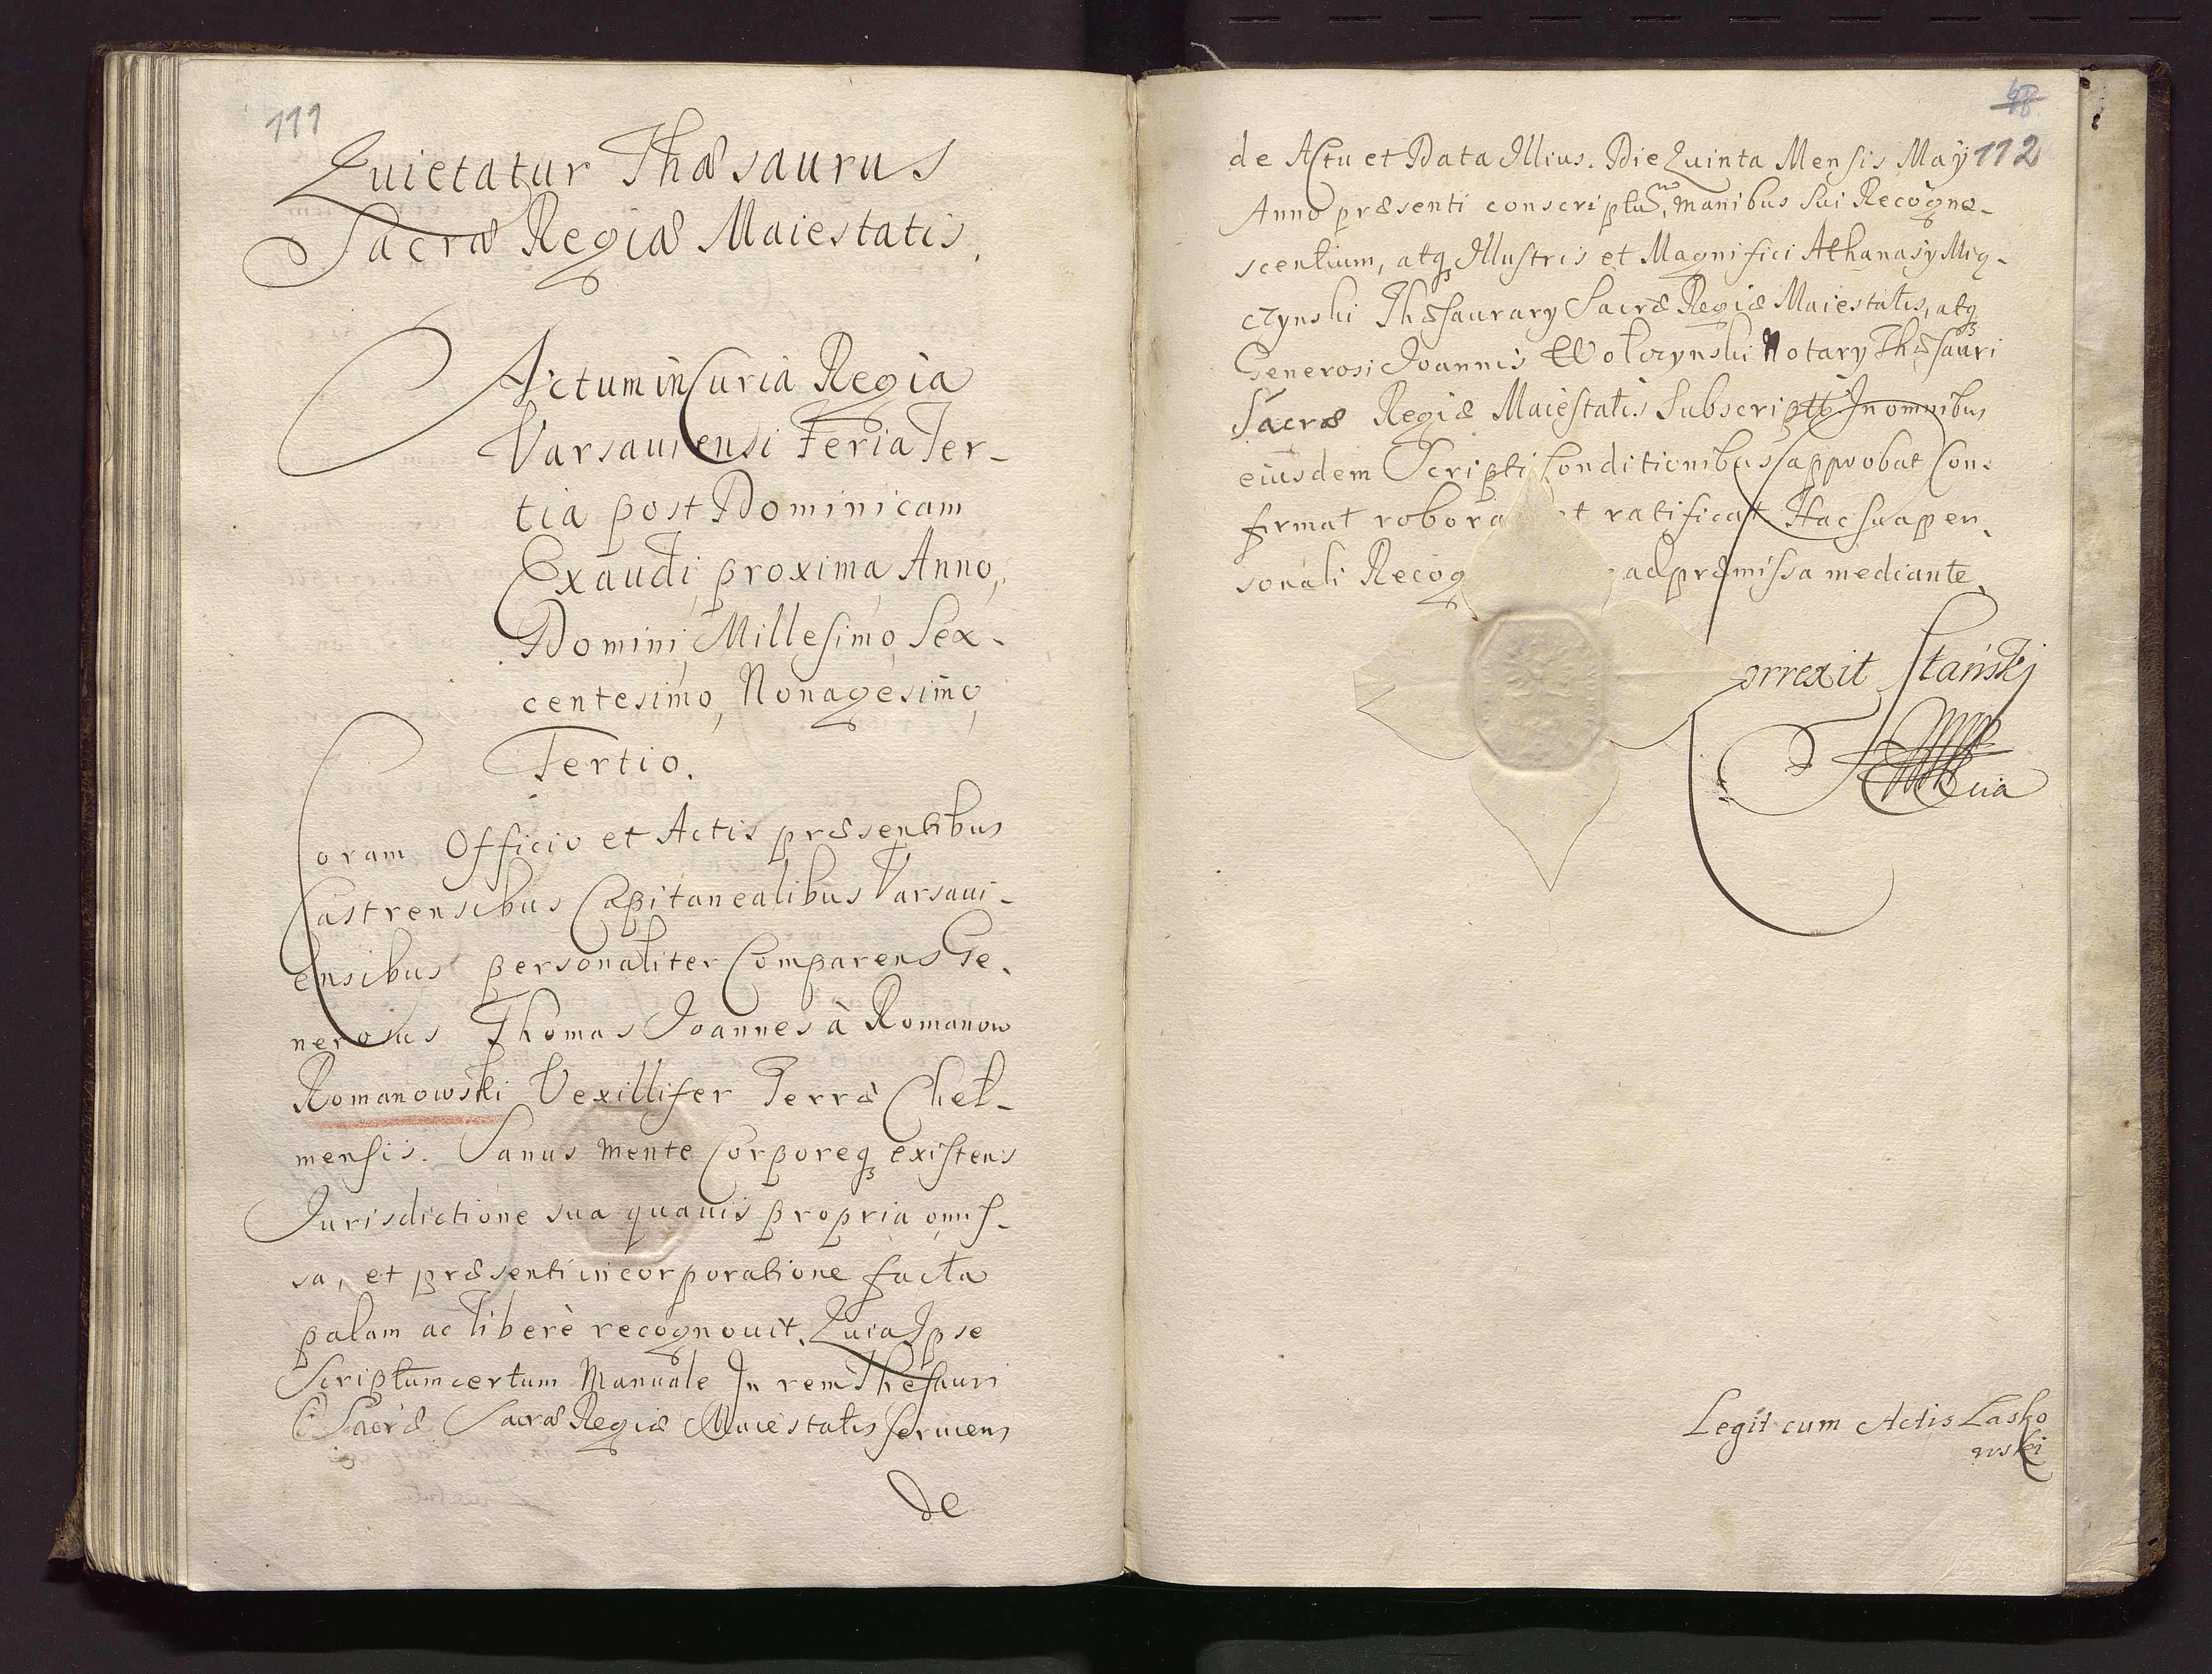 111
Quietatur Thæsaurus
Sacræ Regiæ Maiestatis.
Actum in Curia Regia
Varsauiensi Feria Ter-
tia post Dominicam
Exaudi proxima Anno,
Domini, Millesimo, Sex-
centesimo, Nonagesimo,
Tertio.
Coram Officio et Actis præsentibus
Castrensibus Capitanealibus Varsaui-
ensibus personaliter Comparens Ge-
nerosus Thomas Joannes à Romanow
Romanowski Vexillifer Terræ Cheł-
mensis. Sanus mente Corporeq3 existens
Jurisdictione sua quauis propria omis-
sa, et præsenti incorporatione facta
palam ac liberè recognouit. Quia Ipse
Scriptum certum Manuale In rem Thesauri
Sacræ Sacræ Regiæ Maiestatis seruiens
de
48
112
de Actu et Data Illius. Die Quinta Mensis Maÿ
Anno præsenti conscriptum, manibus sui Recogno-
scentium, atq3 Illustris et Magnifici Athanasÿ Mią-
czynski Thæsaurary Sacræ Regiæ Maiestatis, atq3
Generosi Joannis Wołczynski Notary Thæsauri
Sacræ Regiæ Maiestatis Subscript. In omnibus
eiusdem Scripti Conditionibus approbat Con-
firmat robora et ratificat Hac sua per-
sonali Recog ad præmissa mediante.
orrexit Stański
Legit cum Actis Lasko
wski